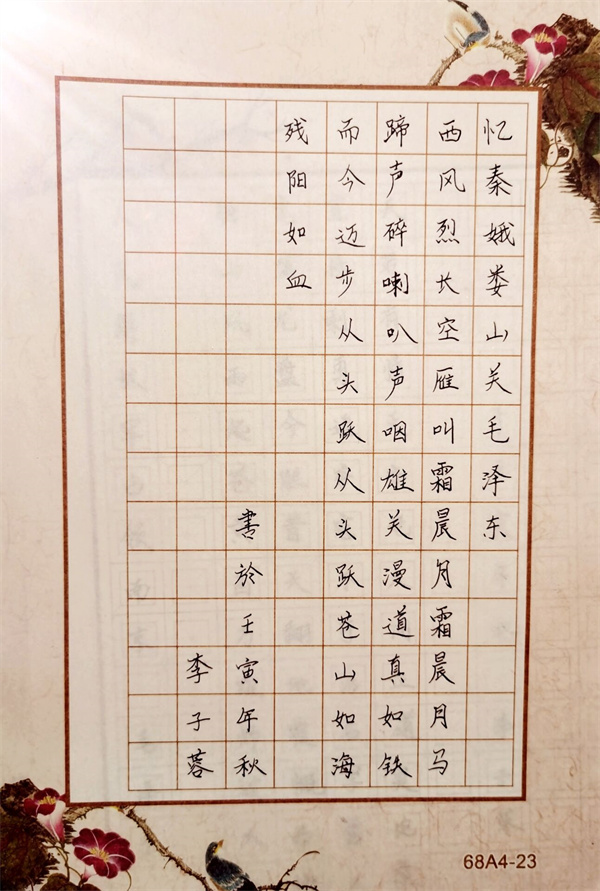 忆秦娥娄山关毛泽东
西风烈长空雁叫霜晨月霜晨月马
蹄声碎喇叭声咽雄关漫道真如铁
而今迈步从头跃从头跃苍山如海
残阳如血
書於壬寅年秋
李子蓉
68A4-23